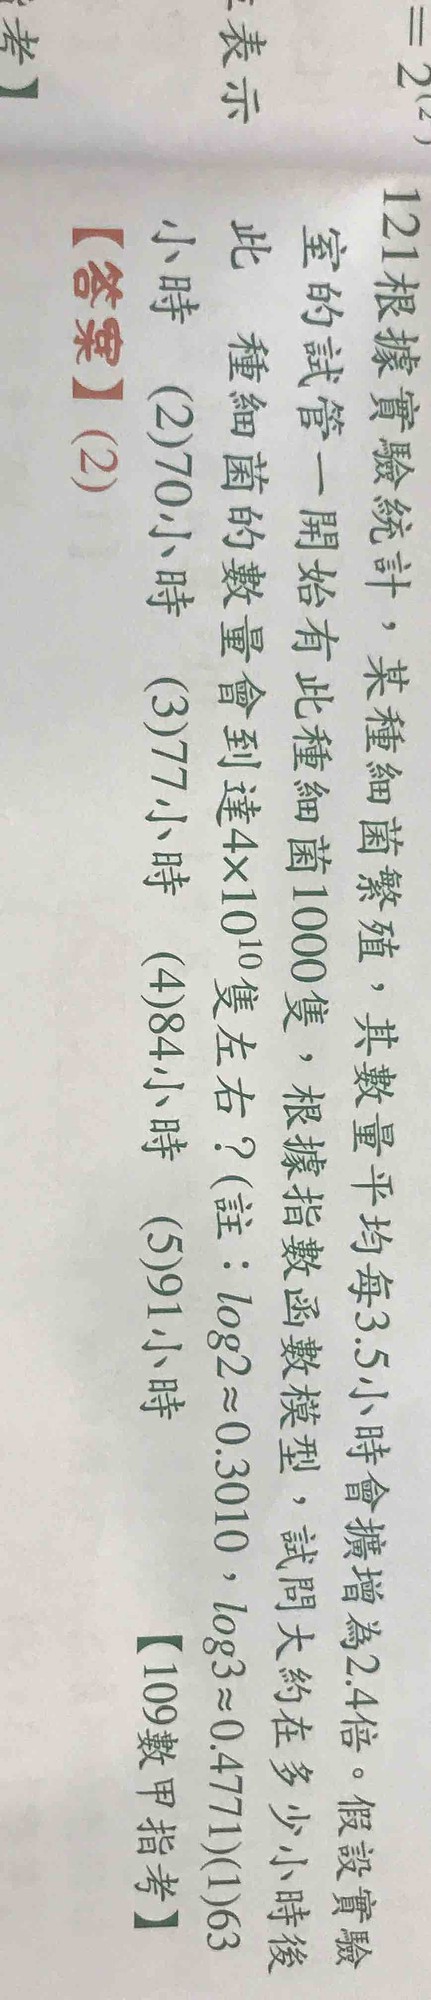 = 2^(2
表示
考】
121根據實驗統計，某種細菌繁殖，其數量平均每3.5小時會擴增為2.4倍。假設實驗
室的試管一開始有此種細菌1000隻，根據指數函數模型，試問大約在多少小時後
此 種細菌的數量會到達4×10¹⁰隻左右？(註：log2≈0.3010，log3≈0.4771)(1)63
小時 (2)70小時 (3)77小時 (4)84小時 (5)91小時 【109數甲指考】
【答案】(2)